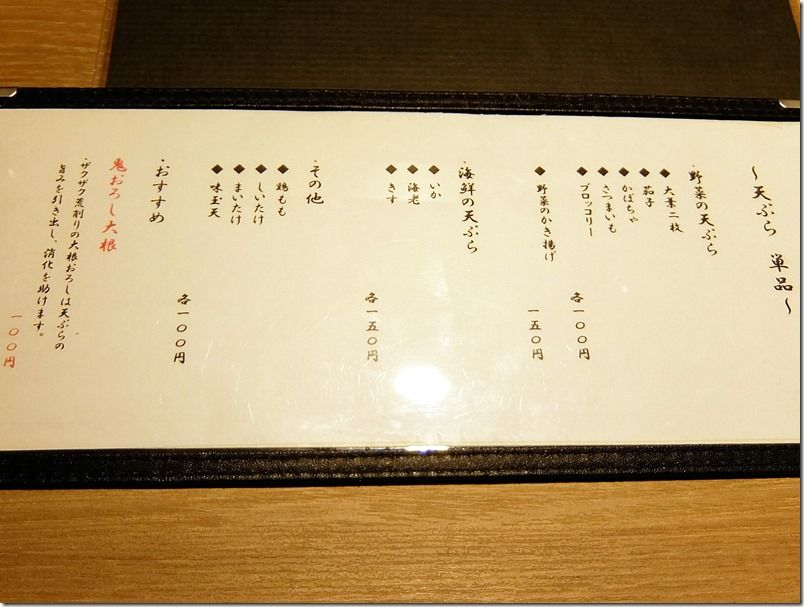 ～天ぷら 単品～
・野菜の天ぷら
◆ 大葉二枚
◆ 茄子
◆ かぼちゃ
◆ さつまいも
◆ ブロッコリー
各一〇〇円
◆ 野菜のかき揚げ
一五〇円
・海鮮の天ぷら
◆ いか
◆ 海老
◆ きす
各一五〇円
・その他
◆ 鶏もも
◆ しいたけ
◆ まいたけ
◆ 味玉天
各一〇〇円
・おすすめ
鬼おろし大根
・ザクザク荒削りの大根おろしは天ぷらの
旨みを引き出し、消化を助けます。
一〇〇円